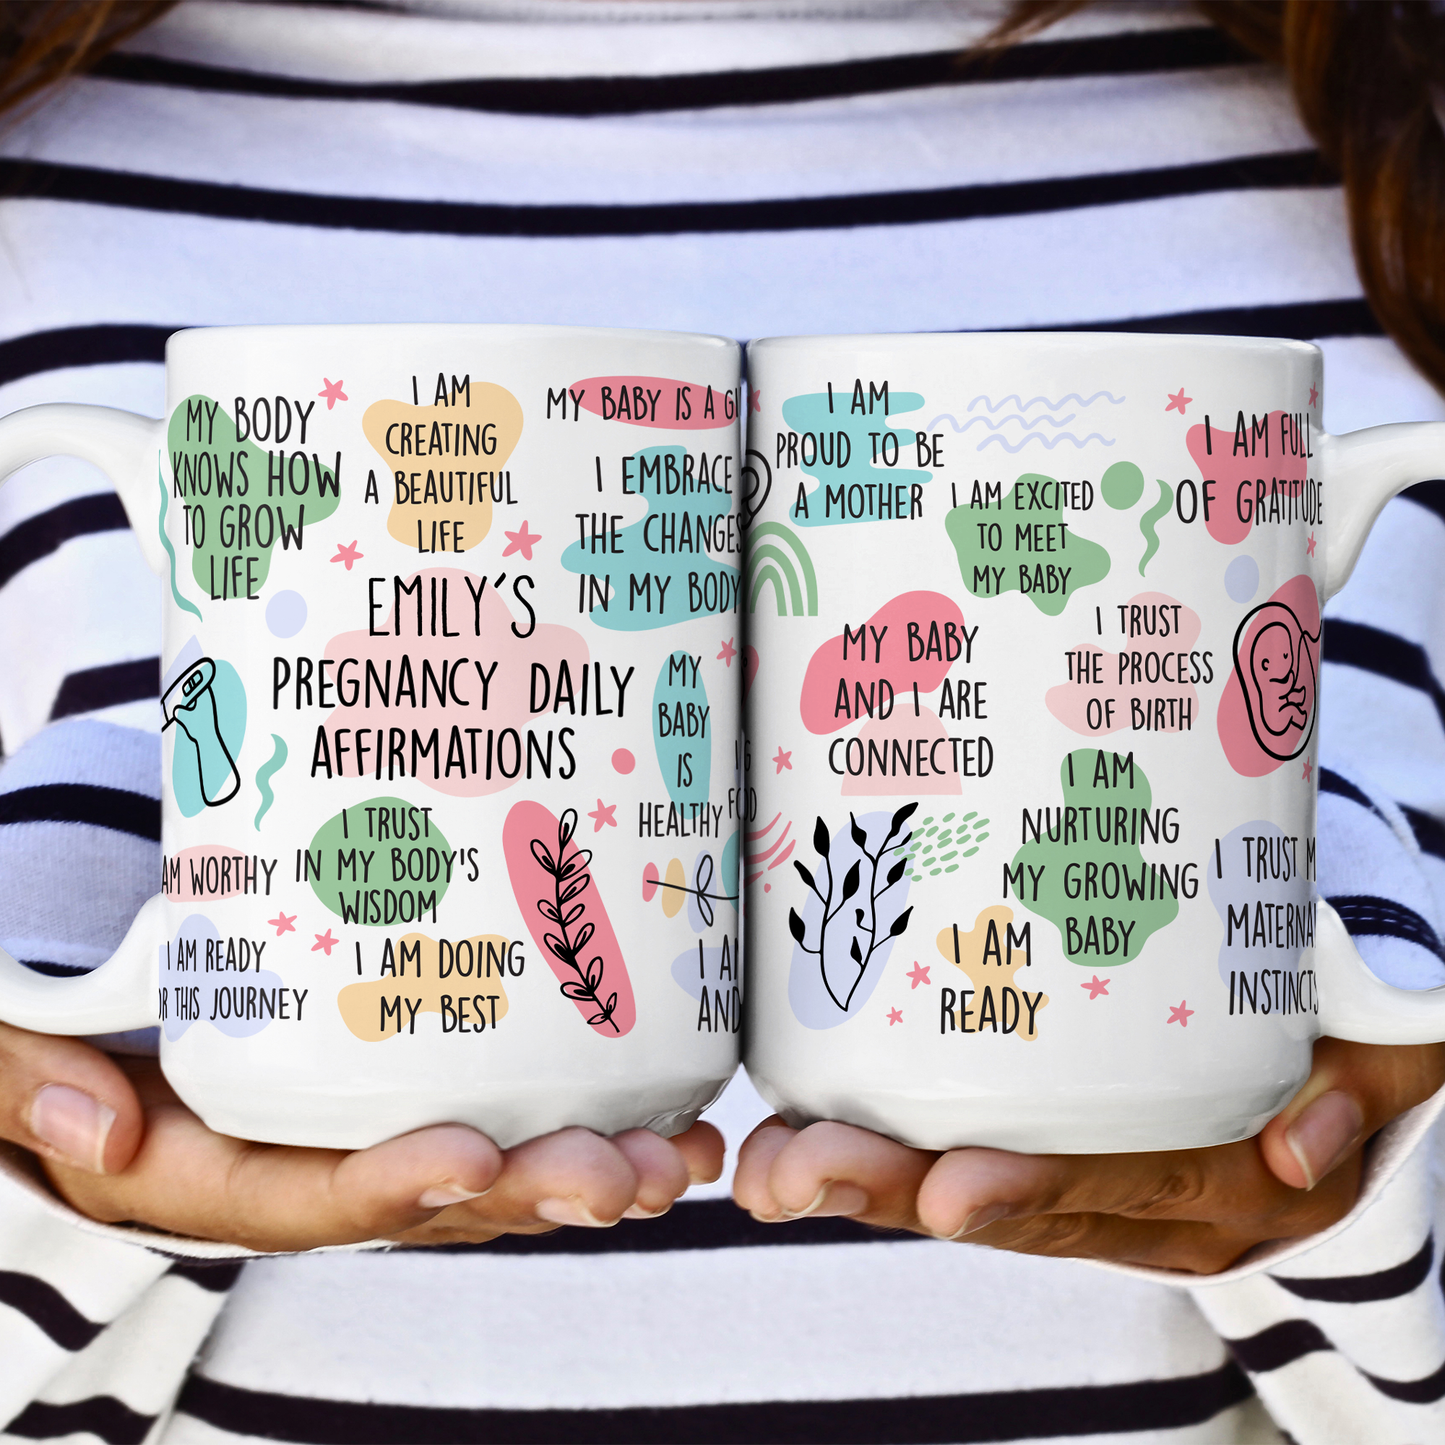 MY BODY
KNOWS HOW
TO GROW
LIFE
I AM
CREATING
A BEAUTIFUL
LIFE
MY BABY IS A
I EMBRACE
THE CHANGES
IN MY BODY
EMILY'S
PREGNANCY DAILY
AFFIRMATIONS
MY
BABY
IS
HEALTHY
I TRUST
IN MY BODY'S
WISDOM
AM WORTHY
I AM READY
THIS JOURNEY
I AM DOING
MY BEST
I
AND
I AM
PROUD TO BE
A MOTHER
I AM EXCITED
TO MEET
MY BABY
I AM FULL
OF GRATITUDE
MY BABY
AND I ARE
CONNECTED
I TRUST
THE PROCESS
OF BIRTH
I AM
NURTURING
MY GROWING
BABY
I AM
READY
I TRUST
MATERNA
INSTINCTS